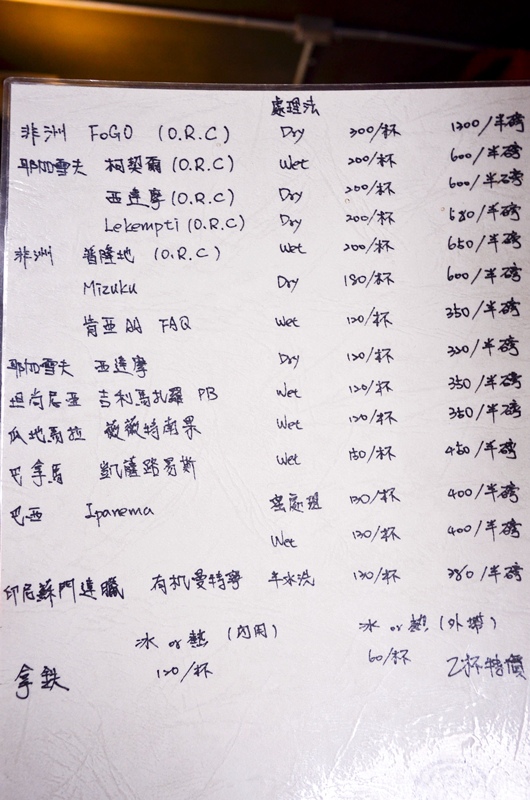 處理法
非洲 FoGO (O.R.C) Dry 300/杯 1200/半磅
耶加雪夫 柯契爾 (O.R.C) Wet 200/杯 600/半磅
西達摩 (O.R.C) Dry 200/杯 600/半磅
Lekempti (O.R.C) Dry 200/杯 580/半磅
非洲 普隆地 (O.R.C) Wet 200/杯 650/半磅
Mizuku Dry 180/杯 600/半磅
肯亞AA FAQ Wet 120/杯 350/半磅
耶加雪夫 西達摩 Dry 120/杯 320/半磅
坦尚尼亞 吉利馬扎羅 PB Wet 120/杯 350/半磅
瓜地馬拉 薇薇特南果 Wet 120/杯 350/半磅
巴拿馬 凱薩路易斯 Wet 150/杯 450/半磅
巴西 Ipanema 蜜處理 130/杯 400/半磅
Wet 130/杯 400/半磅
印尼蘇門達臘 有机曼特寧 半水洗 130/杯 380/半磅
冰 or 熱 (內用) 冰 or 熱 (外帶)
拿鉄 120/杯 60/杯 乙杯特價